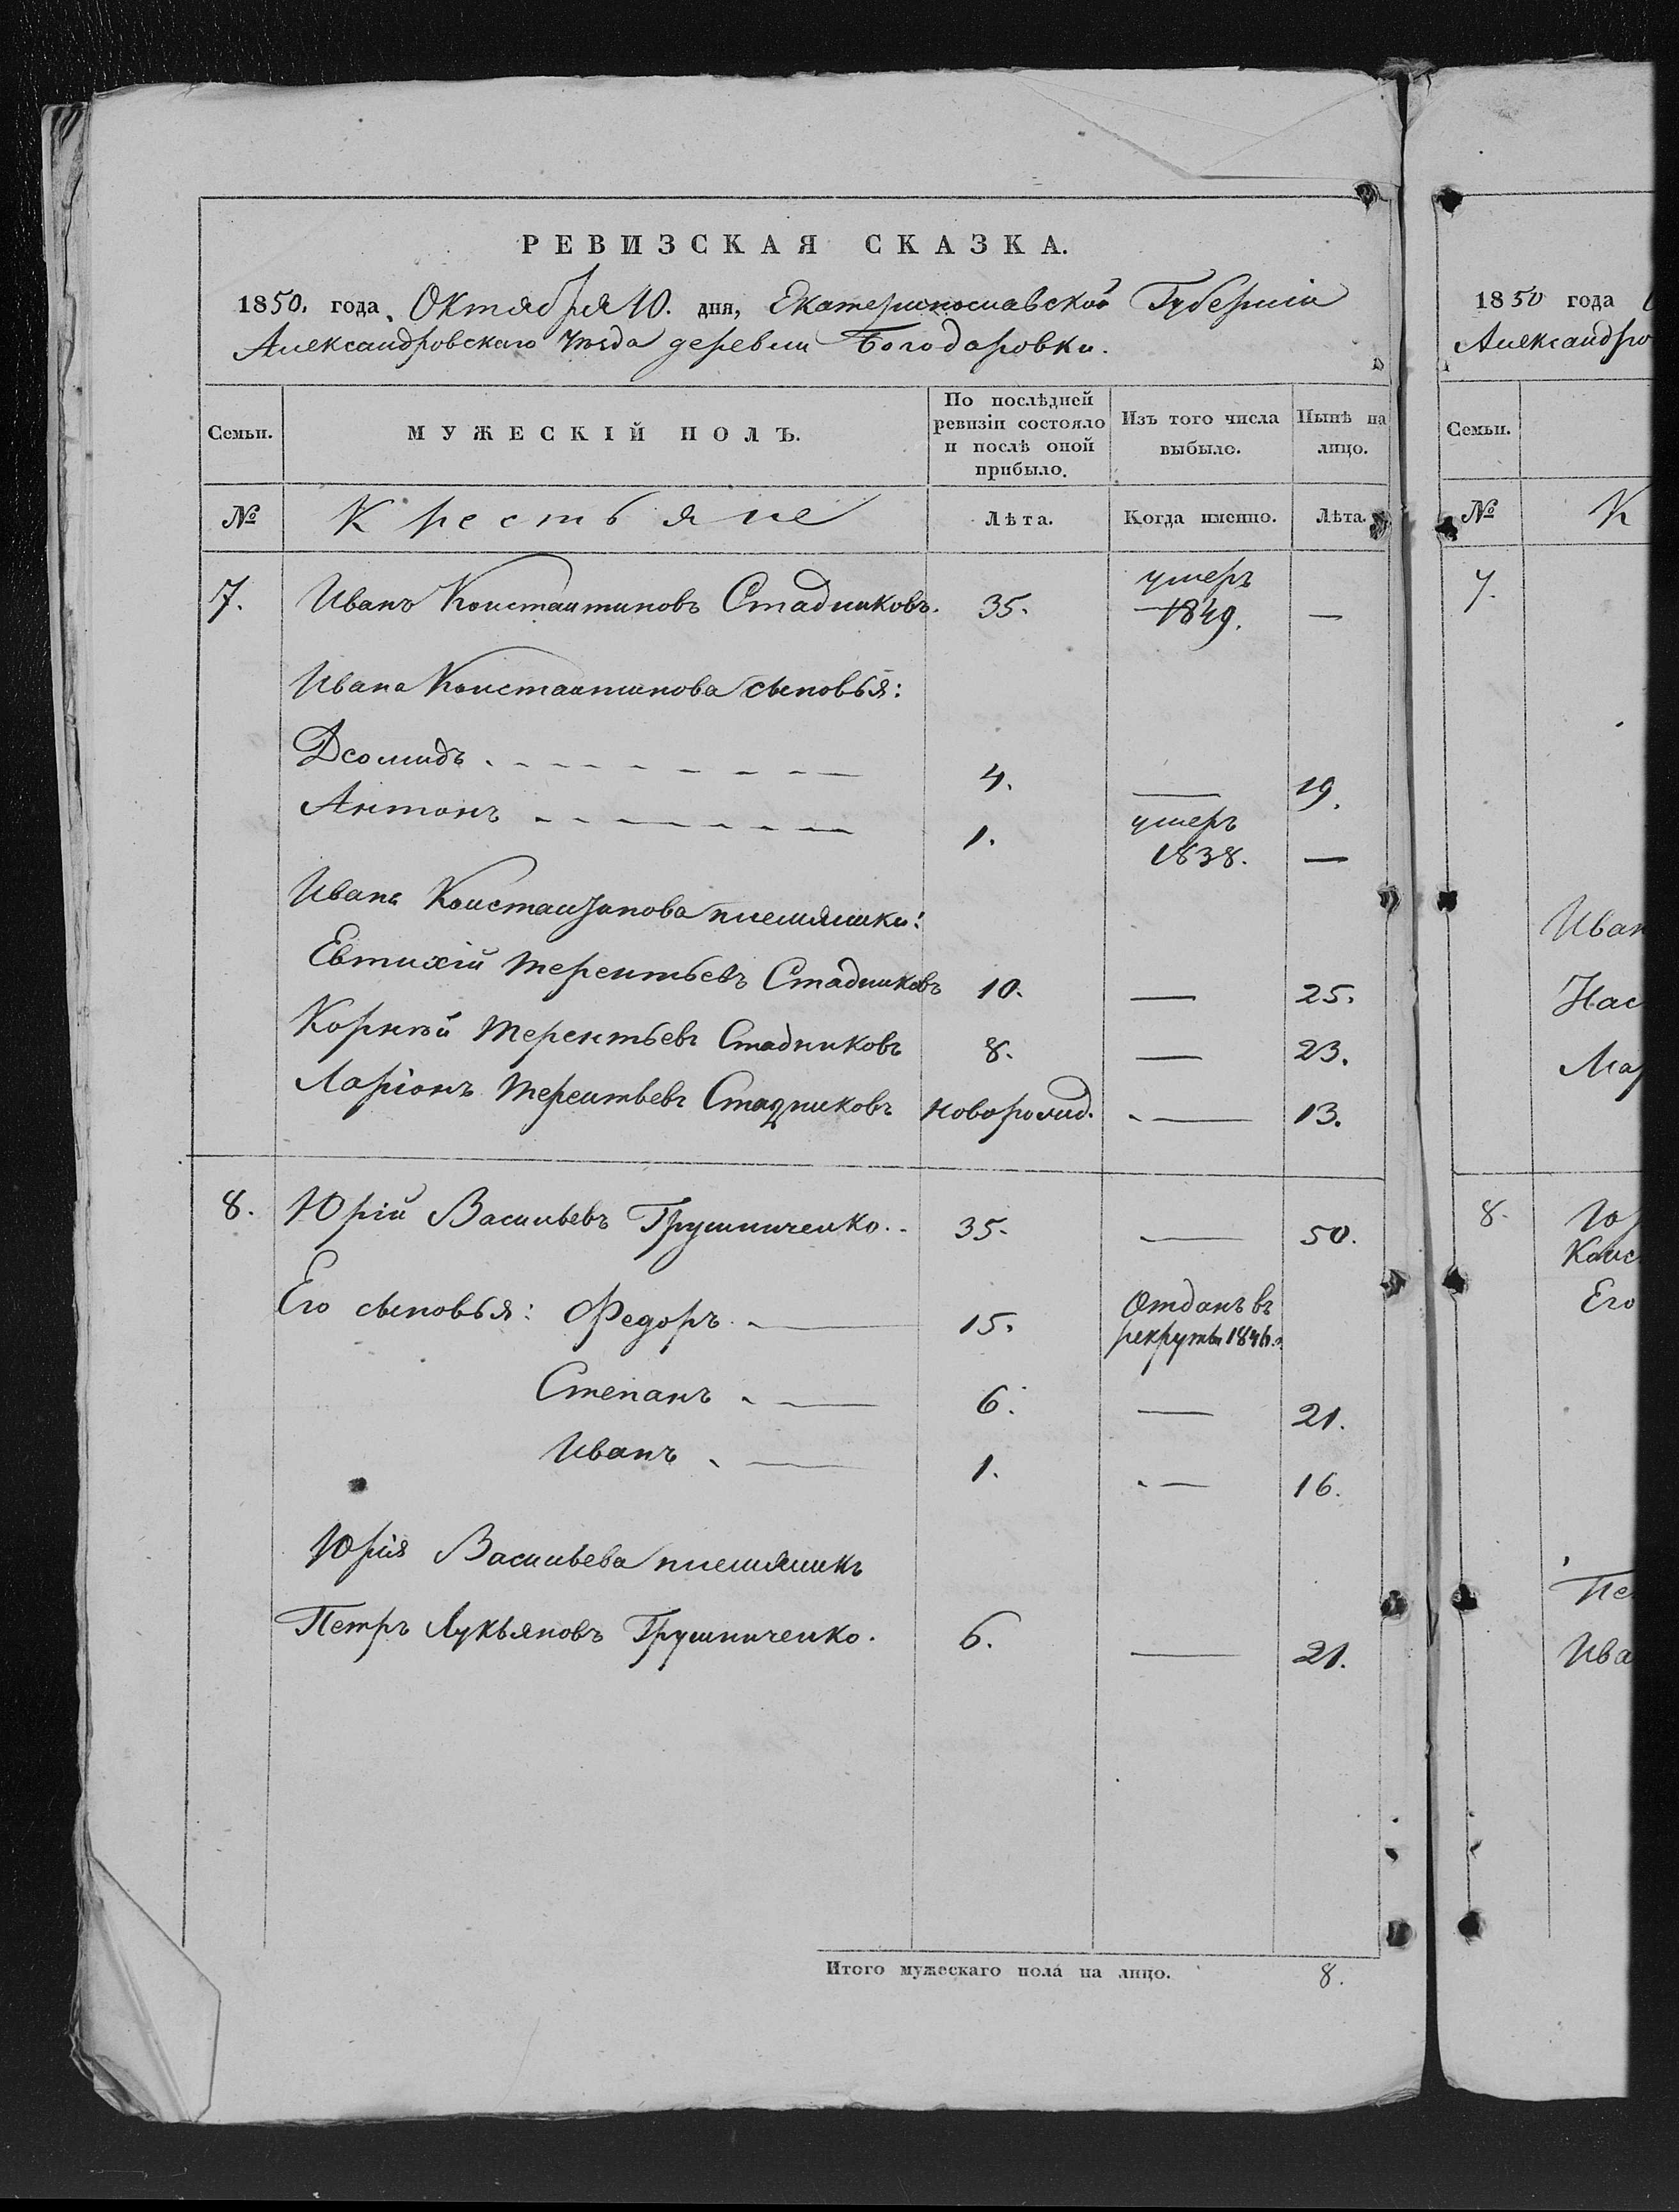 РЕВИЗСКАЯ СКАЗКА.
1850. года, Октября 10. дня, Екатеринославской Губерніи
Александровскаго Уѣзда деревни Богодаровки.
Семьи. МУЖЕСКІЙ ПОЛЪ. По послѣдней ревизіи состояло и послѣ оной прибыло. Изъ того числа выбыло. Нынѣ на лицо.
№ Крестьяне Лѣта. Когда именно. Лѣта.
7. Иванъ Константиновъ Стадниковъ. 35. умеръ 1849. —
Ивана Константинова сыновья:
Дсомидъ. 4. — 19.
Антонъ 1. умеръ 1838. —
Ивана Константинова племяники:
Евтихій Терентьевъ Стадниковъ 10. — 25.
Корнѣй Терентьевъ Стадниковъ 8. — 23.
Ларіонъ Терентьевъ Стадниковъ новорожд. — 13.
8. Юрій Васильевъ Грушниченко. 35. — 50.
Его сыновья: Федоръ. — 15. Отданъ въ рекруты 1846.
Степанъ. — 6. — 21.
Иванъ. — 1. — 16.
Юрія Васильева племяникъ
Петръ Лукьяновъ Грушниченко. 6. — 21.
Итого мужескаго пола на лицо. 8.
1850 года
Александро
Семьи.
№ К
7.
Иван
Нас
Мар
8. Юр
Конс
Его
Пе
Ива